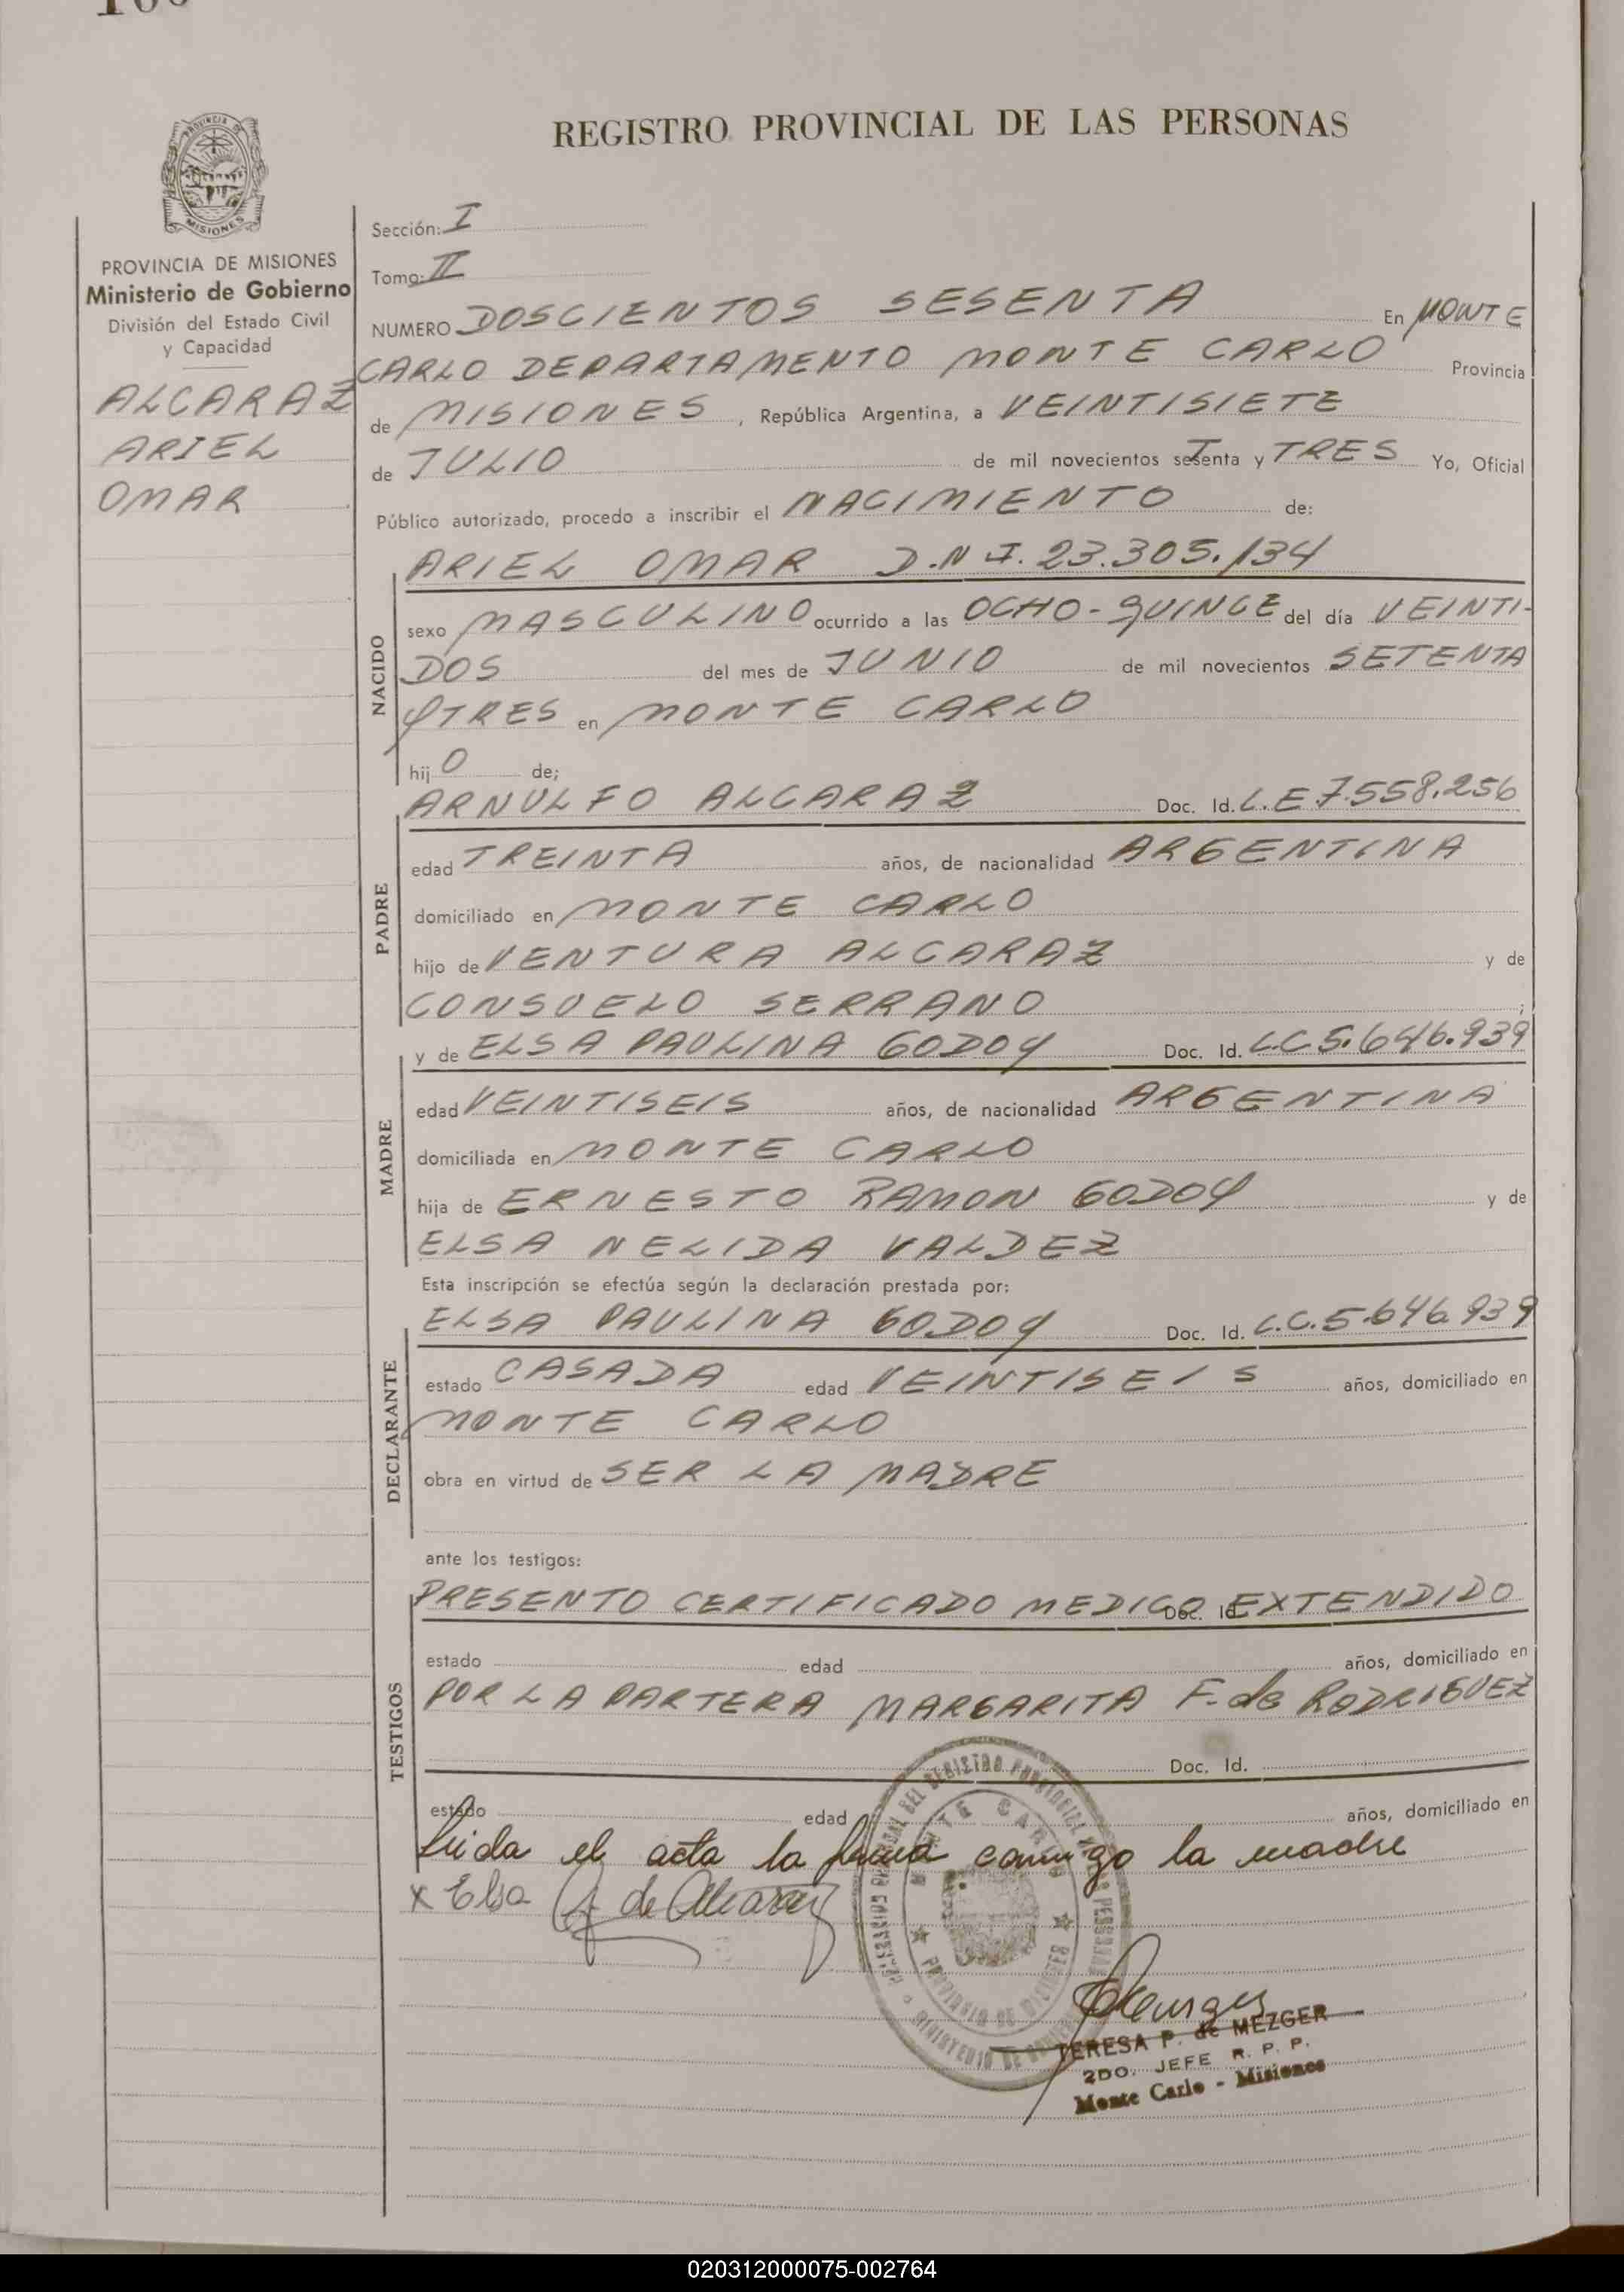 REGISTRO PROVINCIAL DE LAS PERSONAS
PROVINCIA DE
MISIONES
PROVINCIA DE MISIONES
Ministerio de Gobierno
División del Estado Civil
y Capacidad
ALCARAZ
ARIEL
OMAR
Sección: I
Tomo: II
NUMERO DOSCIENTOS SESENTA En MONTE
CARLO DEPARTAMENTO MONTE CARLO Provincia
de MISIONES, República Argentina, a VEINTISIETE
de JULIO de mil novecientos setenta y TRES Yo, Oficial
Público autorizado, procedo a inscribir el NACIMIENTO de:
ARIEL OMAR D.N.I. 23.305.134
NACIDO
sexo MASCULINO ocurrido a las OCHO-QUINCE del día VEINTI-
DOS del mes de JUNIO de mil novecientos SETENTA
YTRES en MONTE CARLO
hij O de;
ARNULFO ALCARAZ Doc. Id. L.E 7.558.256
PADRE
edad TREINTA años, de nacionalidad ARGENTINA
domiciliado en MONTE CARLO
hijo de VENTURA ALCARAZ y de
CONSUELO SERRANO ;
y de ELSA PAULINA GODOY Doc. Id. L.C 5.646.939
MADRE
edad VEINTISEIS años, de nacionalidad ARGENTINA
domiciliada en MONTE CARLO
hija de ERNESTO RAMON GODOY y de
ELSA NELIDA VALDEZ
Esta inscripción se efectúa según la declaración prestada por:
ELSA PAULINA GODOY Doc. Id. L.C.5.646.939
DECLARANTE
estado CASADA edad VEINTISEIS años, domiciliado en
MONTE CARLO
obra en virtud de SER LA MADRE
ante los testigos:
PRESENTO CERTIFICADO MEDICO Doc. Id. EXTENDIDO
TESTIGOS
estado edad años, domiciliado en
POR LA PARTERA MARGARITA F. de RODRIGUEZ
Doc. Id.
estado edad años, domiciliado en
Leida el acta la firma conmigo la madre
x Elsa G. de Alcaraz
MONTE CARLO
PROVINCIA DE MISIONES
TERESA P. de MEZGER
2DO. JEFE R. P. P.
Monte Carlo - Misiones
020312000075-002764